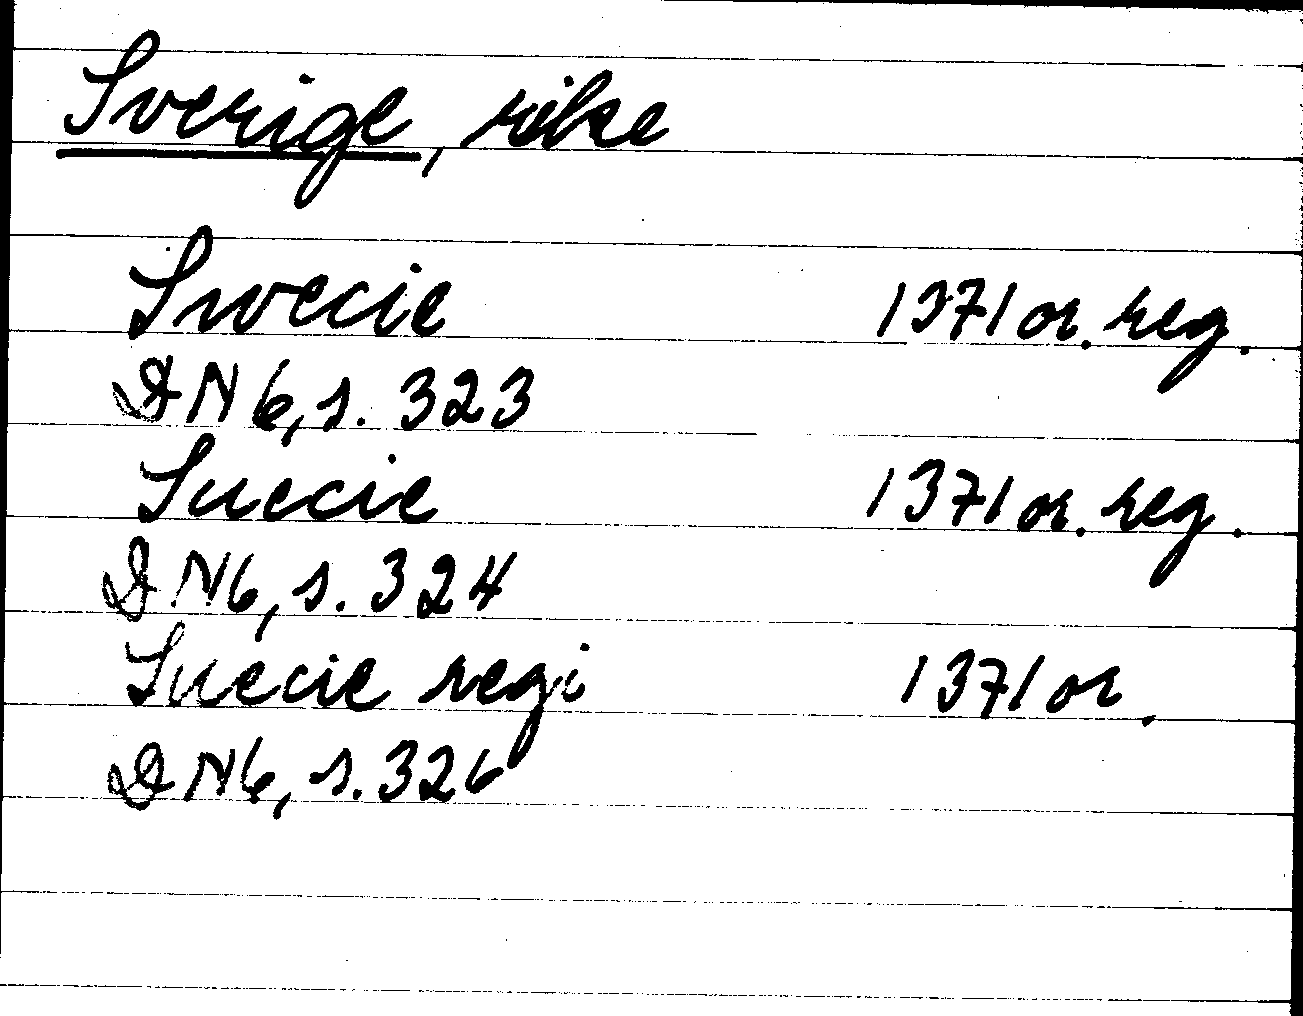 Sverige, rike
Swecie 1371 or. reg.
DN 6, s. 323
Suecie 1371 or. reg.
DN 6, s. 324
Suecie regi 1371 or.
DN 6, s. 326